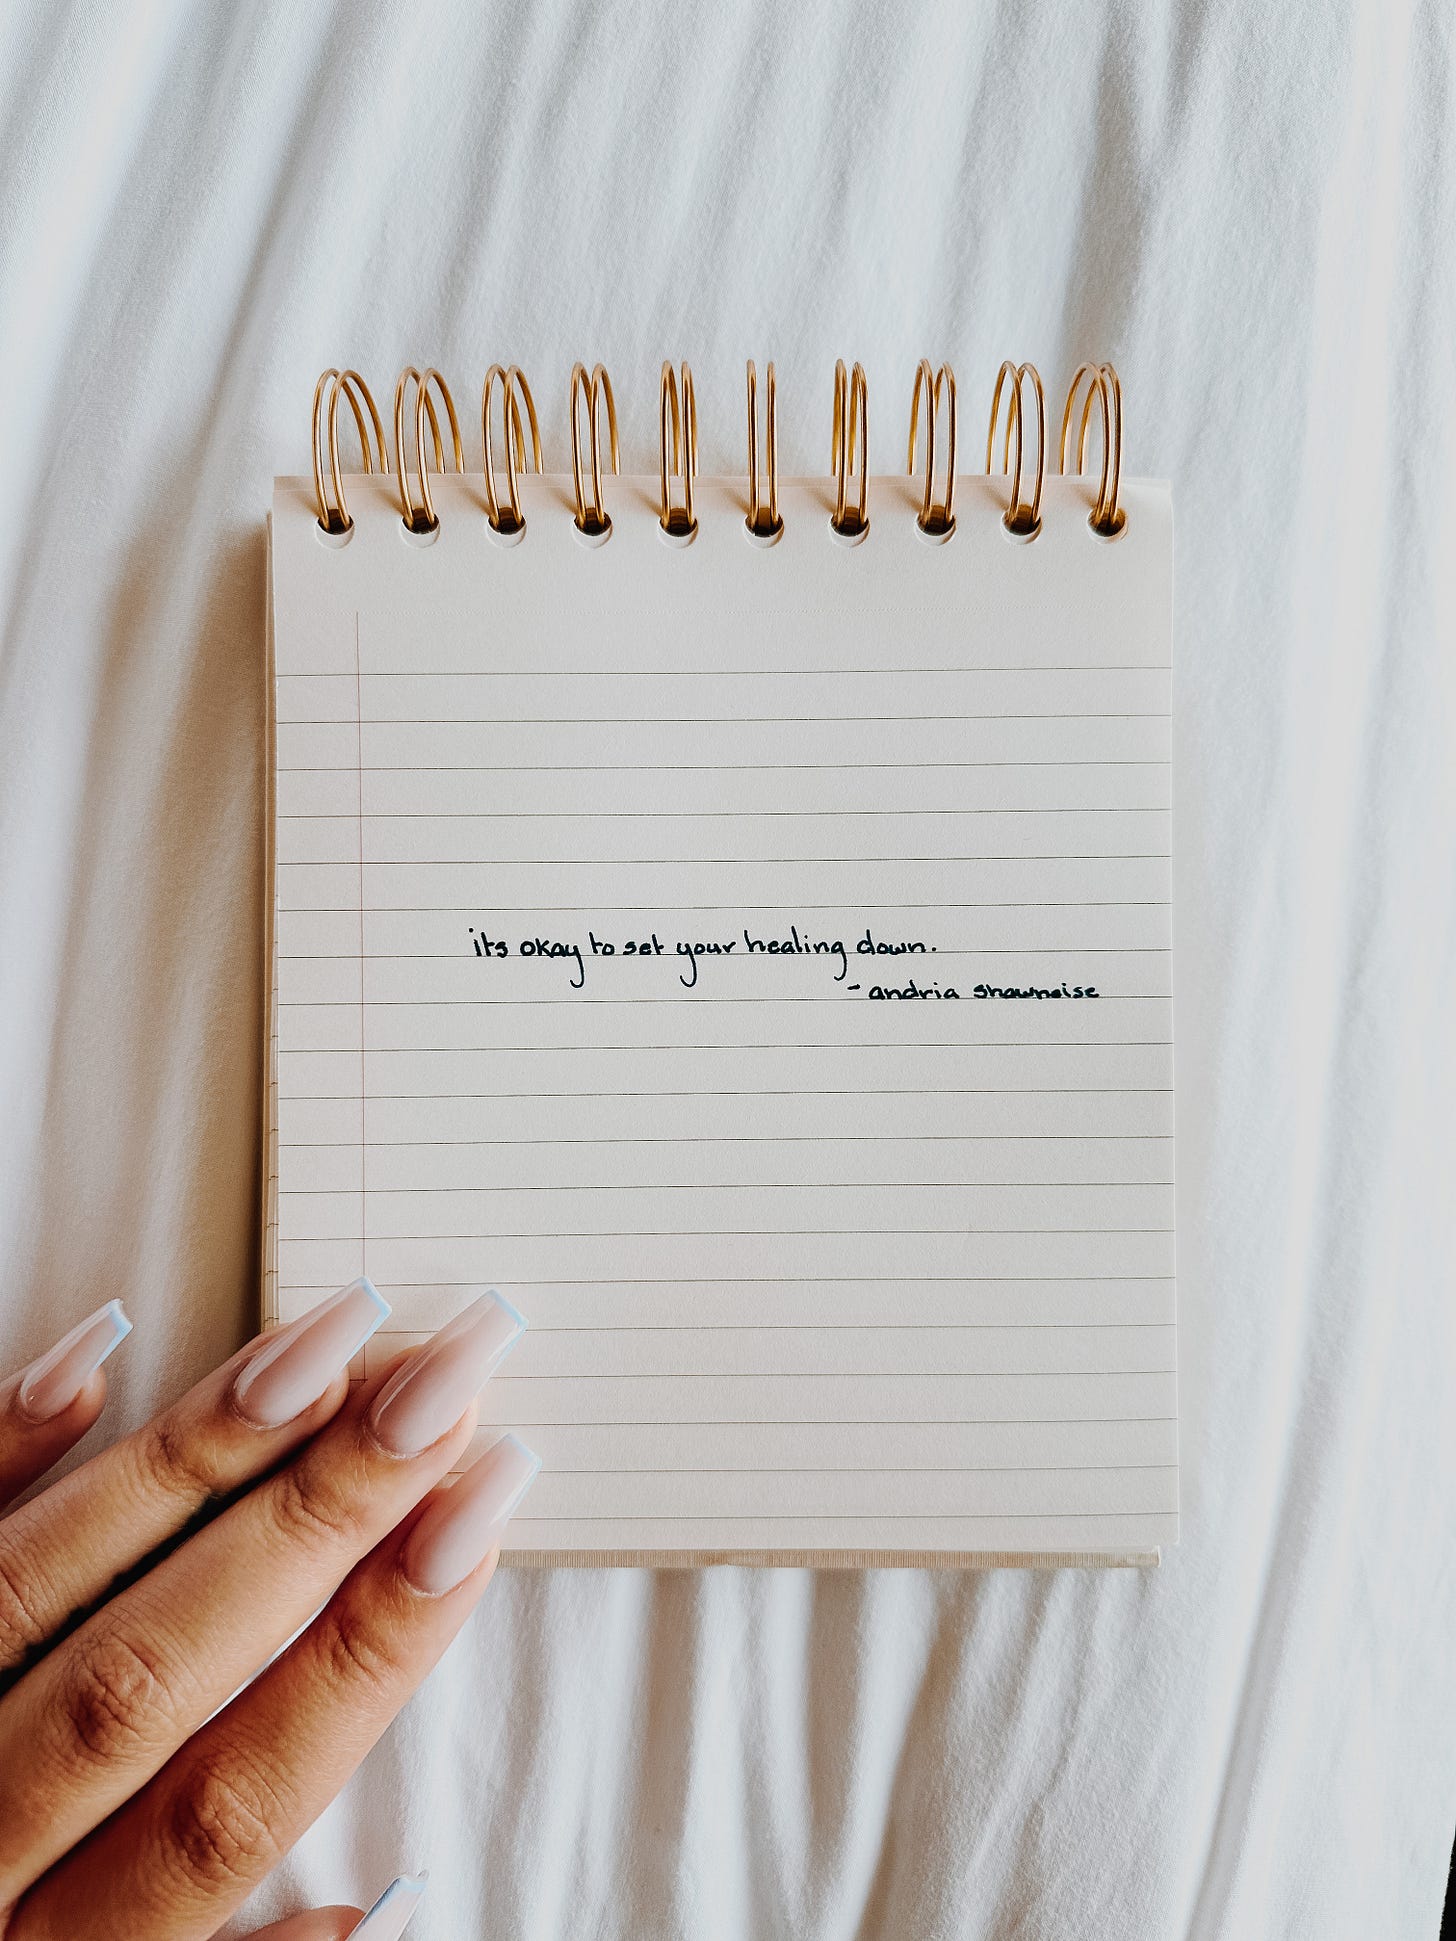 its okay to set your healing down.
- andria shawneise